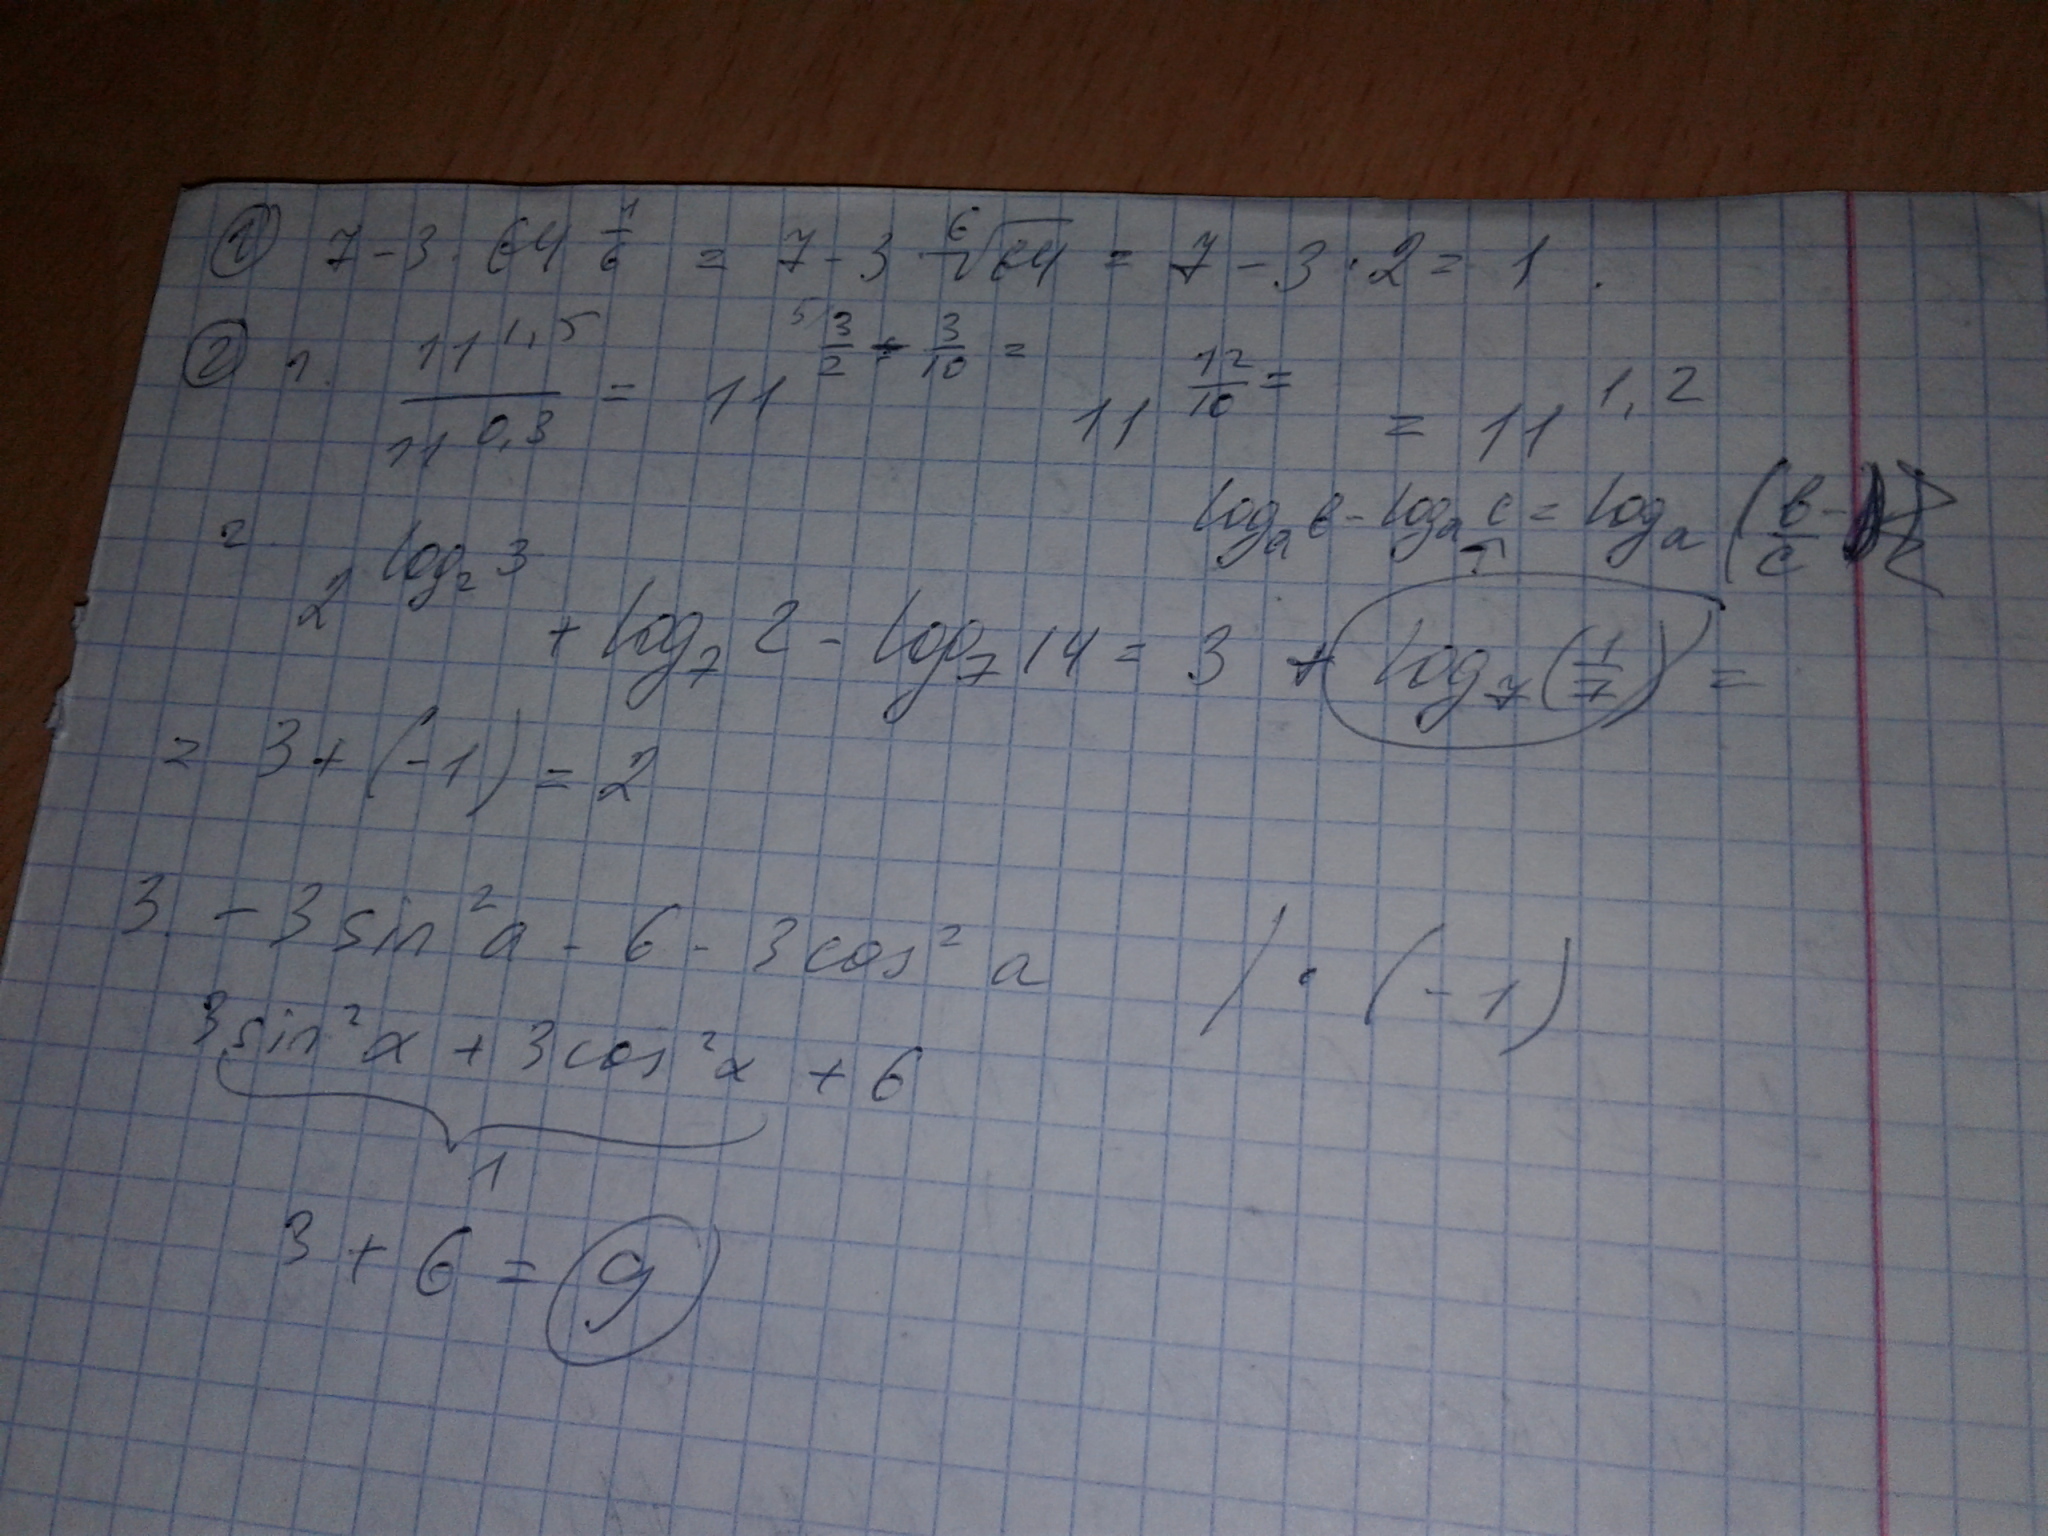 ① 7 - 3 · 64^(1/6) = 7 - 3 · ⁶√64 = 7 - 3 · 2 = 1 .
② 1. 11^(1,5) / 11^(0,3) = 11^(⁵⁾3/2 - 3/10) = 11^(12/10) = = 11^(1,2)
logₐ b - logₐ c = logₐ (b/c
2. 2^(log₂ 3) + log₇ 2 - log₇ 14 = 3 + log₇ (1/7) =
= 3 + (-1) = 2
3. - 3 sin² a - 6 - 3 cos² a / · (-1)
3 sin² α + 3 cos² α + 6
1
3 + 6 = 9